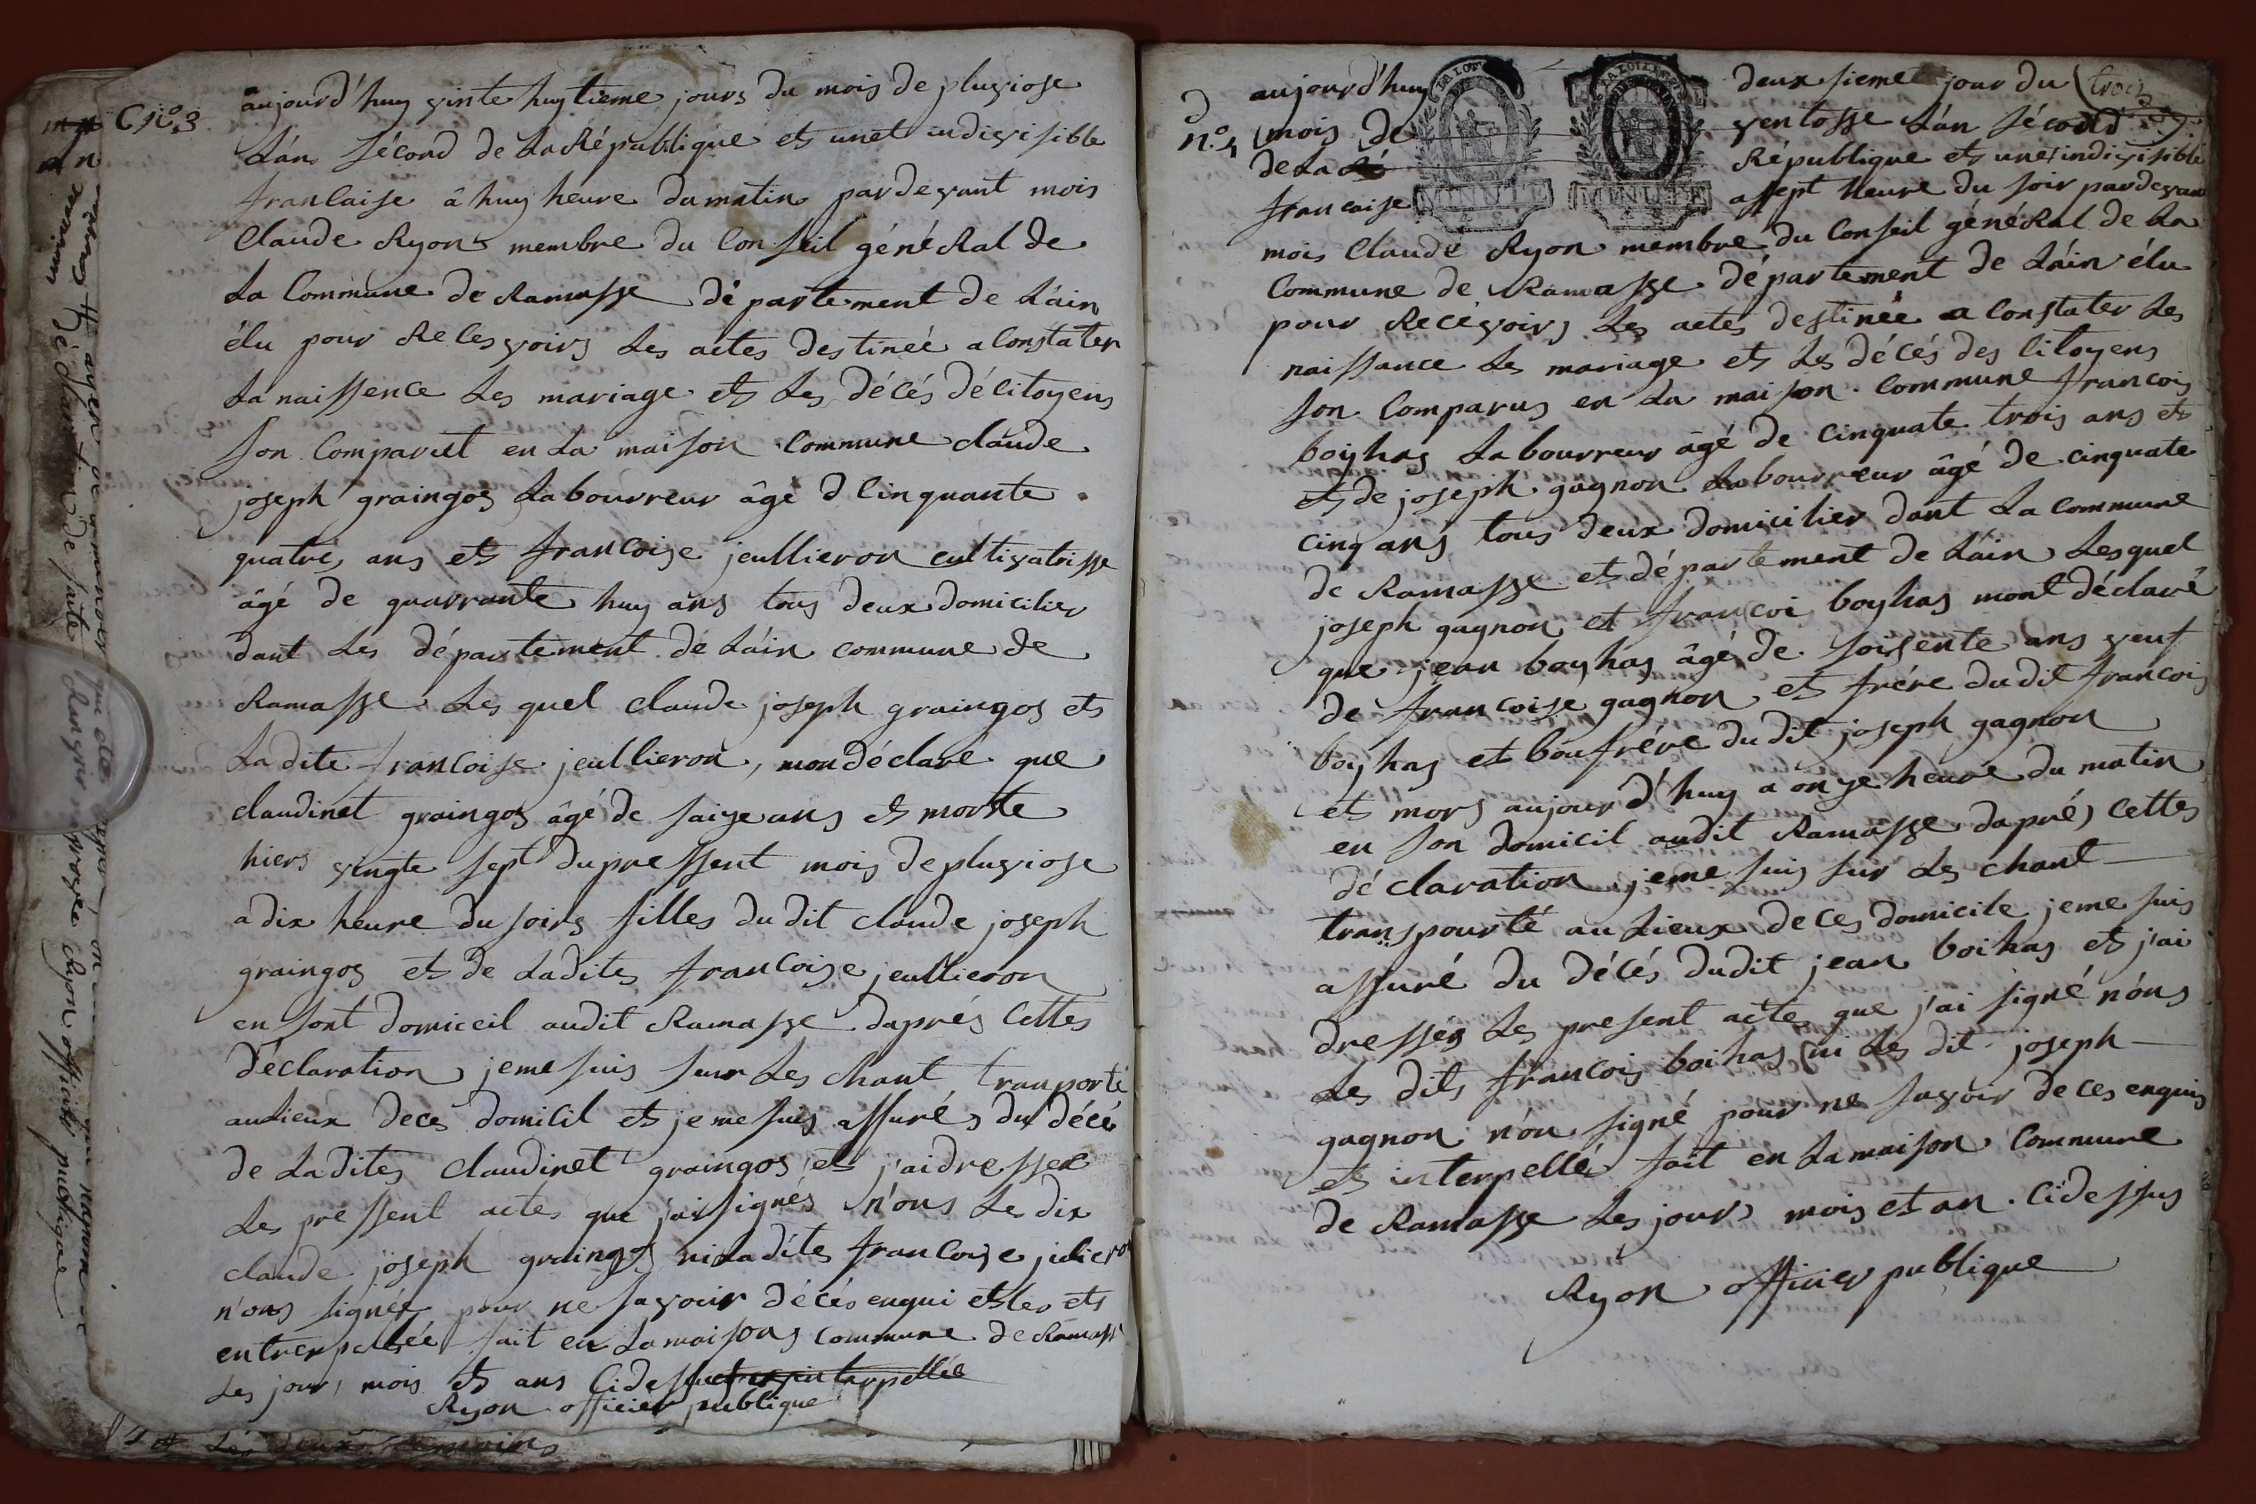 C n.o 3
aujourd'huy vinte huytieme jours du mois de pluviose
L'án sécond de La République et unet indivisible
francaise â huy heure du matin pardevant mois
Claude Ryon membre du Conseil généRal de
La Commune de Ramasse département de L'áin
élu pour Recesvoirs Les actes destineé a Constater
La naissence Les mariage et Les décés dé Citoyens
Son Comparut en La maison Commune claude
joseph graingos Labourreur âge d Cinquante
quatre ans et francoise jeullieron cultivatrisse
âgé de quarrante huy ans tous deux domicilier
dant Les département de L'áin commune de
Ramasse Les quel claude joseph graingos et
Ladite francoise jeullieron, mon déclaré que
claudinet graingos âgé de saize ans et morte
hiers vingte sept du pressent mois de pluviose
a dix heure du soirs filles du dit claude joseph
graingos et de Ladites francoise jeullieron
en sont domiceil audit Ramasse daprés Cettes
déclaration jeme suis sur Les chant tranporté
au Lieux de ces domicil et je me suis assurés du décé
de Ladites claudinet graingos et j'ai dresser
Les pressent actes que j'ai signés n'ons Le dix
claude joseph graingos ni Ladites francoise julieron
n'ons signée pour ne savoir de cés enqui etles et
entrerpellée fait en La maisons commune de Ramass
Les jour, mois et ans Cidessu et interpellée
Ryon officier publique
Les deux temoins
déclaration de faite
Ryon officier publique
d
n.o 4
aujourd'huy deux sieme jour du
trois
mois de ventosse L'án sécond
de La Ré République et une indivisible
francaise a sept heure du soir pardevan
LA LOI
MINUTE
LA LOI
MINUTE
mois Claude Ryon membre du Conseil généRal de La
Commune de Ramasse département de L'áin élu
pour Recevoirs Les actes destineé a Constater Les
naissance Les mariage et Les décés des Citoyens
son Comparus en La maison Commune francois
boyhas Labourreur âgé de cinquate trois ans et
et de joseph gagnon Labourreur âgé de cinquate
cinq ans tous deux domicilier dant La commune
de Ramasse et département de L'áin Lesquel
joseph gagnon et francoi boyhas mont déclaré
que jean boyhas âgé de soisente ans veuf
de francoise gagnon et frére du dit francois
boyhas et boufrére du dit joseph gagnon
et mors aujourd'huy a onze heure du matin
en son domicil audit Ramasse daprés Cettes
déclaration jeme suis sur Les chant
transpourté au Lieux de Ces domicile jeme suis
assuré du décés du dit jean boihas et j'ai
dressés Les present acte que j'ai signé n'óns
Les dits francois boihas ni Les dit joseph
gagnon n'ón signé pour ne savoir de ces enquis
et interpellé fait en La maison Commune
de Ramasse Les jours mois et an Cidessus
Ryon officier publique